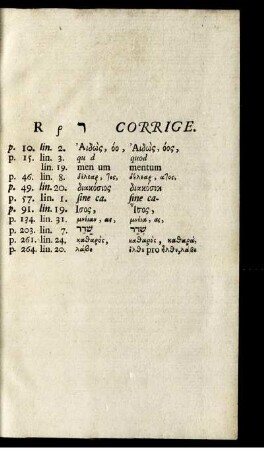 R ρ ר CORRIGE.
p. 10. lin. 2. Ἀιδὼς, όο, Ἀιδὼς, όος,
p. 15. lin. 3. qu d quod
lin. 19. men um mentum
p. 46. lin. 8. δέλεαρ, ατος.
p. 49. lin. 20. διακόσιος διακόσιοι
p. 57. lin. 1. sine ca. sine ca-
p. 91. lin. 19. Ισος, Ἴσος,
p. 134. lin. 31. μνέια, ας,
p. 203. lin. 7.
p. 261. lin. 24, καθαρὸς, καθαρὸς, καθαρὰ,
p. 264. lin. 20. pro